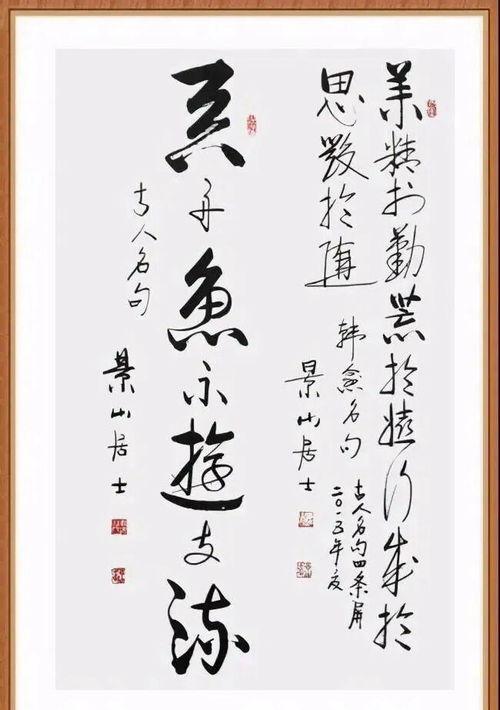 業精於勤荒於嬉行成於
思毀於隨
韓愈名句
景山居士
古人名句四条屏
二〇一五年夏
吞舟魚不遊支流
古人名句
景山居士